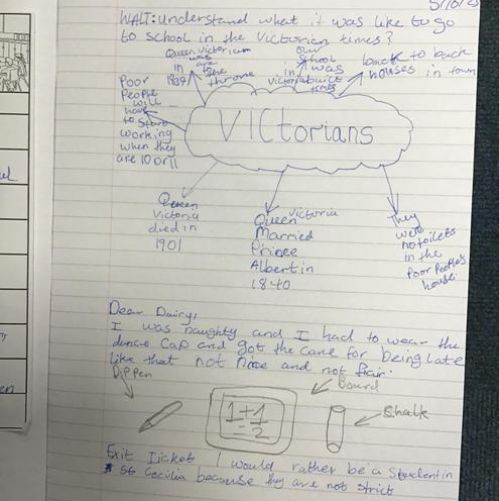 WALT: Understand what it was like to go
to school in the Victorian times?
Queen Victoriam
was
are
in
the
1837
throne
our
school
was
in
built
Victoria
times
back to back
houses in town
Poor
People
will
have
to start
working
when they
are 10 or 11
VICtorians
Queen
Victoria
died in
1901
Queen Victoria
Married
Prince
Albert in
1840
They
were
no toilets
in the
Poor People's
house
Dear Dairy,
I was naughty and I had to wear the
dunce Cap and got the cane for being late
like that not nice and not fair.
Dip Pen
Board
1+1
=2
Shalk
Exit Ticket I would rather be a student in
St Cecilia because they are not strict